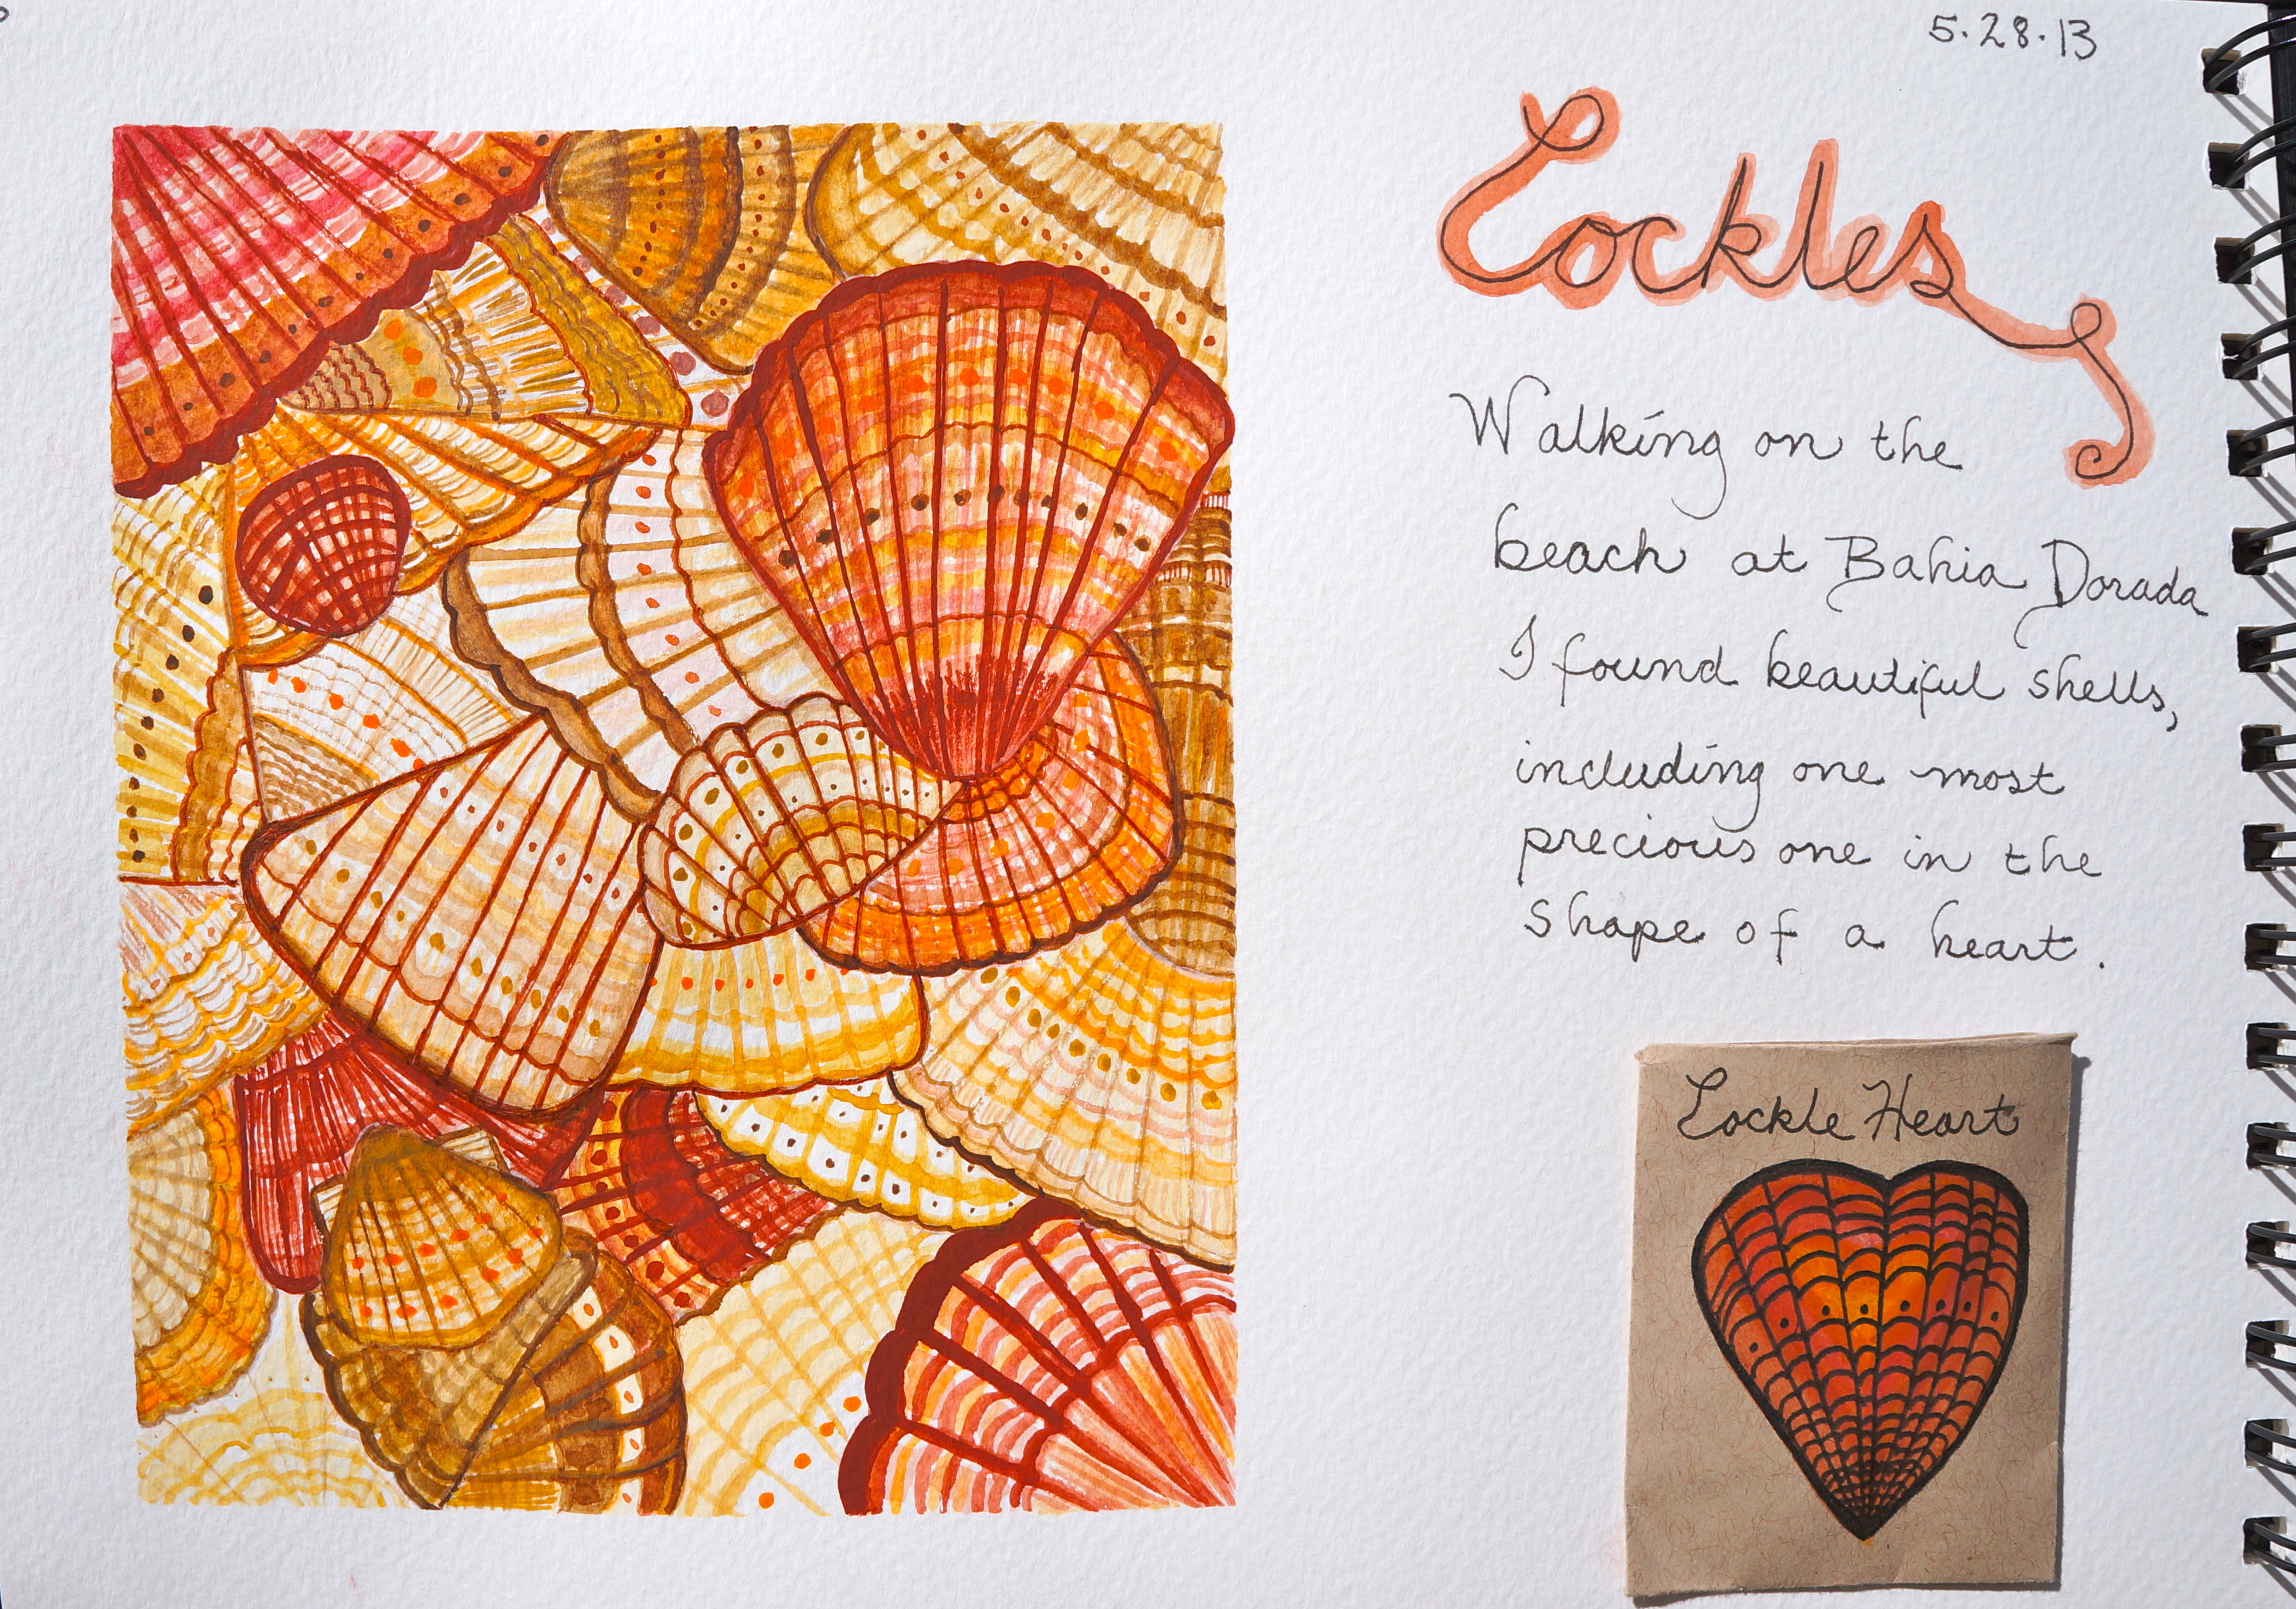 5.28.13
Cockles
Walking on the
beach at Bahia Dorada
I found beautiful shells,
including one most
precious one in the
shape of a heart.
Cockle Heart